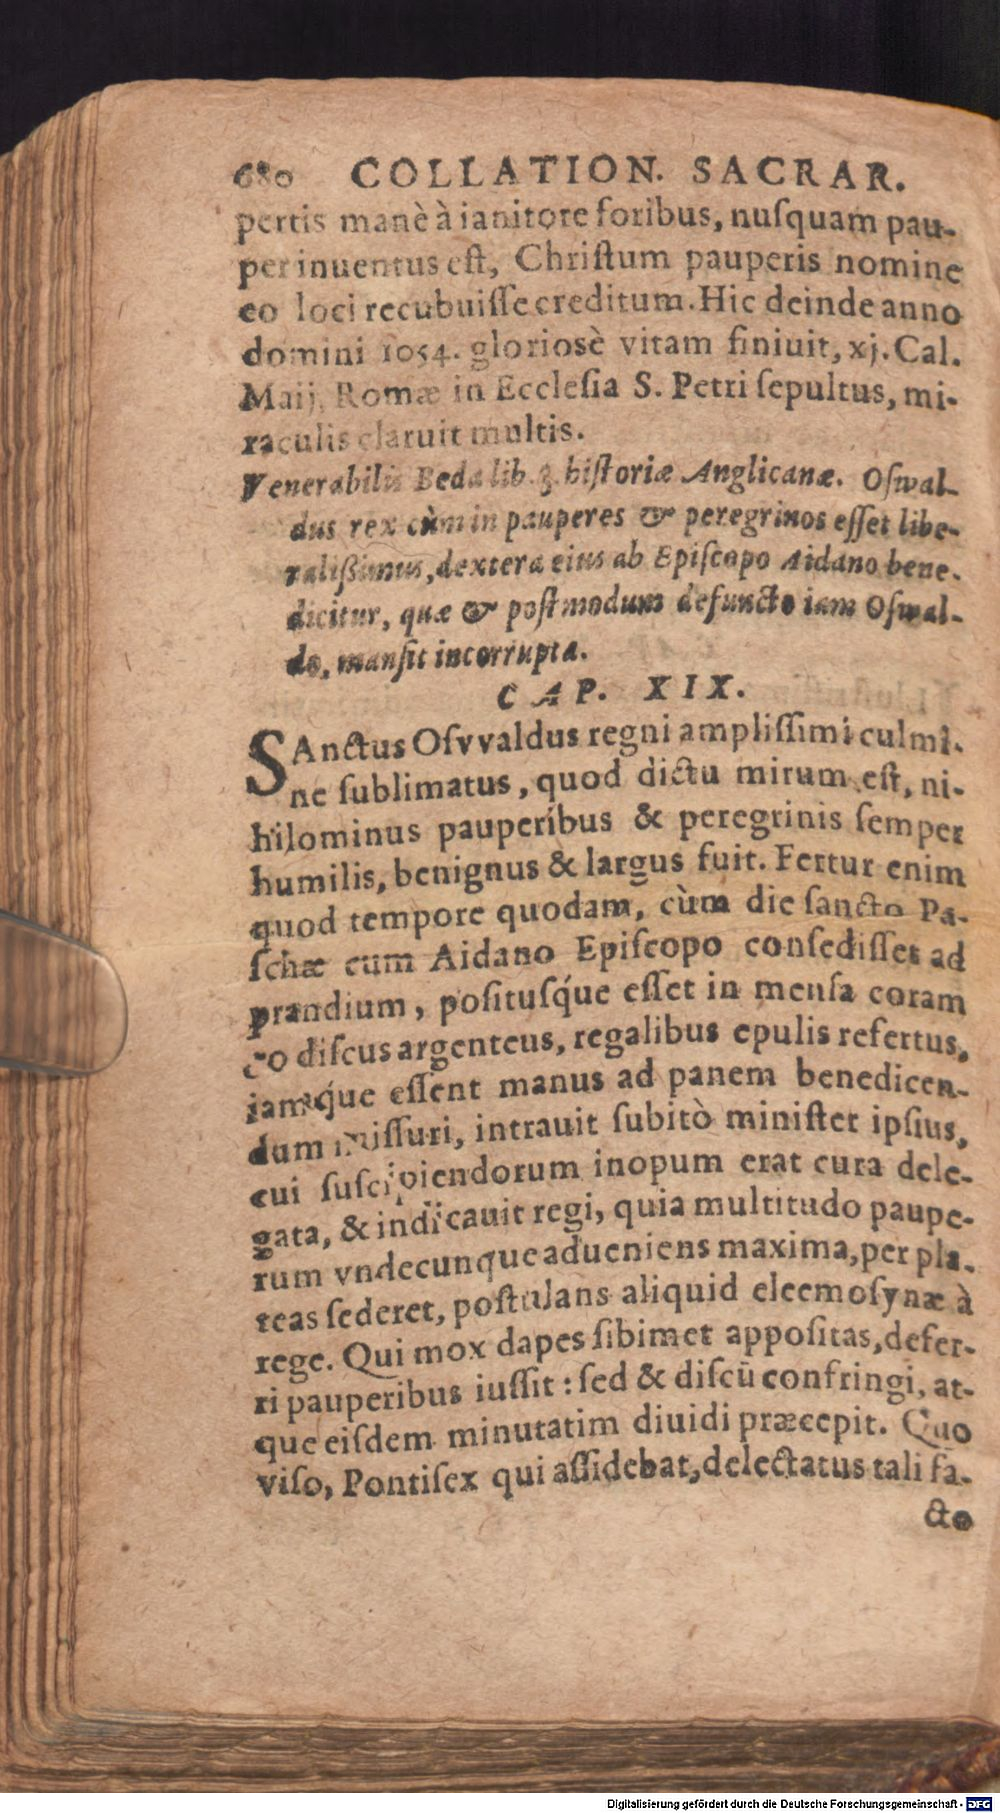 680 COLLATION. SACRAR.
pertis manè à ianitore foribus, nuſquam pau-
per inuentus eſt, Chriſtum pauperis nomine
eo loci recubuiſſe creditum. Hic deinde anno
domini 1054. glorioſè vitam finiuit, xj. Cal.
Maij, Romæ in Eccleſia S. Petri ſepultus, mi-
raculis claruit multis.
Venerabilis Beda lib. 3. hiſtoriæ Anglicanæ. Oſwal-
dus rex cùm in pauperes & peregrinos eſſet libe-
ralißimus, dextera eius ab Epiſcopo Aidano bene-
dicitur, quæ & poſtmodum defuncto iam Oſwal-
do, manſit incorrupta.
CAP. XIX.
SAnctus Oſvvaldus regni ampliſſimi culmi-
ne ſublimatus, quod dictu mirum eſt, ni-
hilominus pauperibus & peregrinis ſemper
humilis, benignus & largus fuit. Fertur enim
quod tempore quodam, cùm die ſancto Pa-
ſchæ cum Aidano Epiſcopo conſediſſet ad
prandium, poſituſq́ue eſſet in menſa coram
eo diſcus argenteus, regalibus epulis refertus,
iamq́ue eſſent manus ad panem benedicen-
dum miſſuri, intrauit ſubitò miniſter ipſius,
cui ſuſcipiendorum inopum erat cura dele-
gata, & indicauit regi, quia multitudo paupe-
rum vndecunque adueniens maxima, per pla-
teas ſederet, poſtulans aliquid eleemoſynæ à
rege. Qui mox dapes ſibimet appoſitas, defer-
ri pauperibus iuſſit: ſed & diſcū confringi, at-
que eiſdem minutatim diuidi præcepit. Quo
viſo, Pontifex qui aſſidebat, delectatus tali fa-
cto
Digitalisierung gefördert durch die Deutsche Forschungsgemeinschaft - DFG